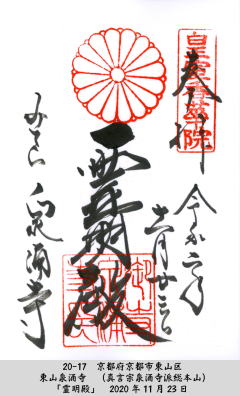 皇室香華院
奉拝
令和二年
十一月廿三日
霊明殿
みてら 泉涌寺
20-17 京都府京都市東山区
東山泉涌寺 (真言宗泉涌寺派総本山)
「霊明殿」 2020年11月23日